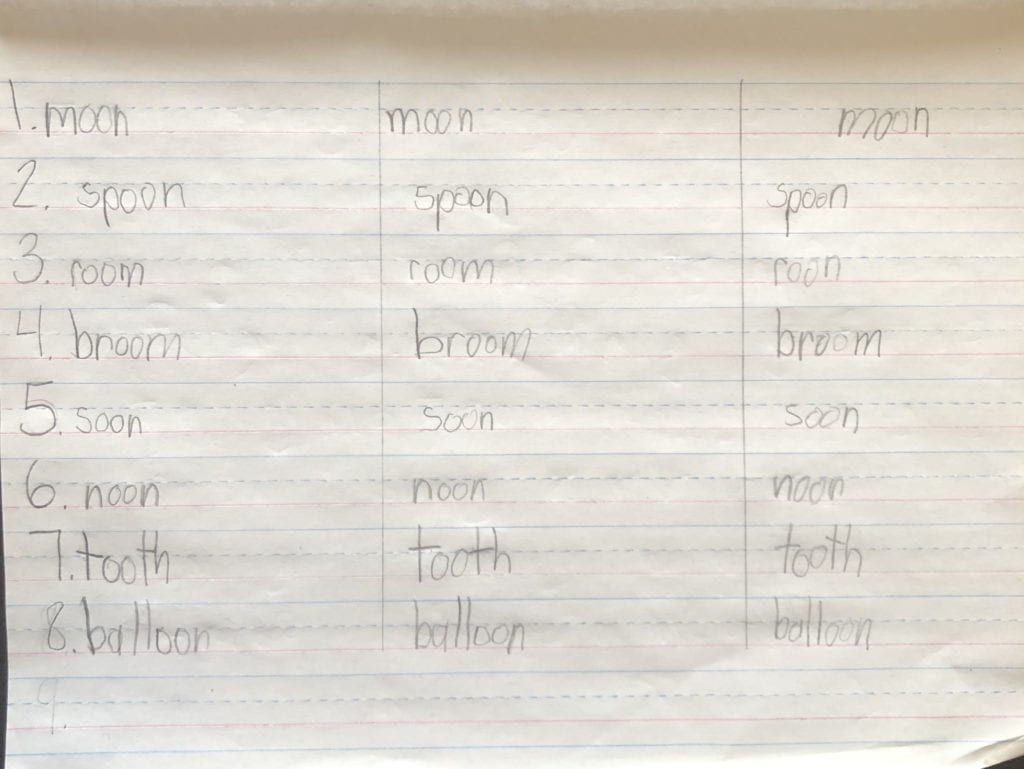 1. moon moon moon
2. spoon spoon spoon
3. room room roon
4. broom broom broom
5. soon soon soon
6. noon noon noon
7. tooth tooth tooth
8. balloon balloon balloon
9.